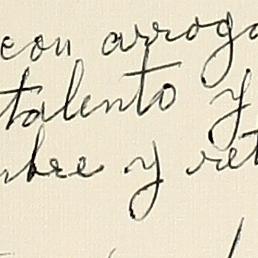 con arroga
talento y
mbre y ret